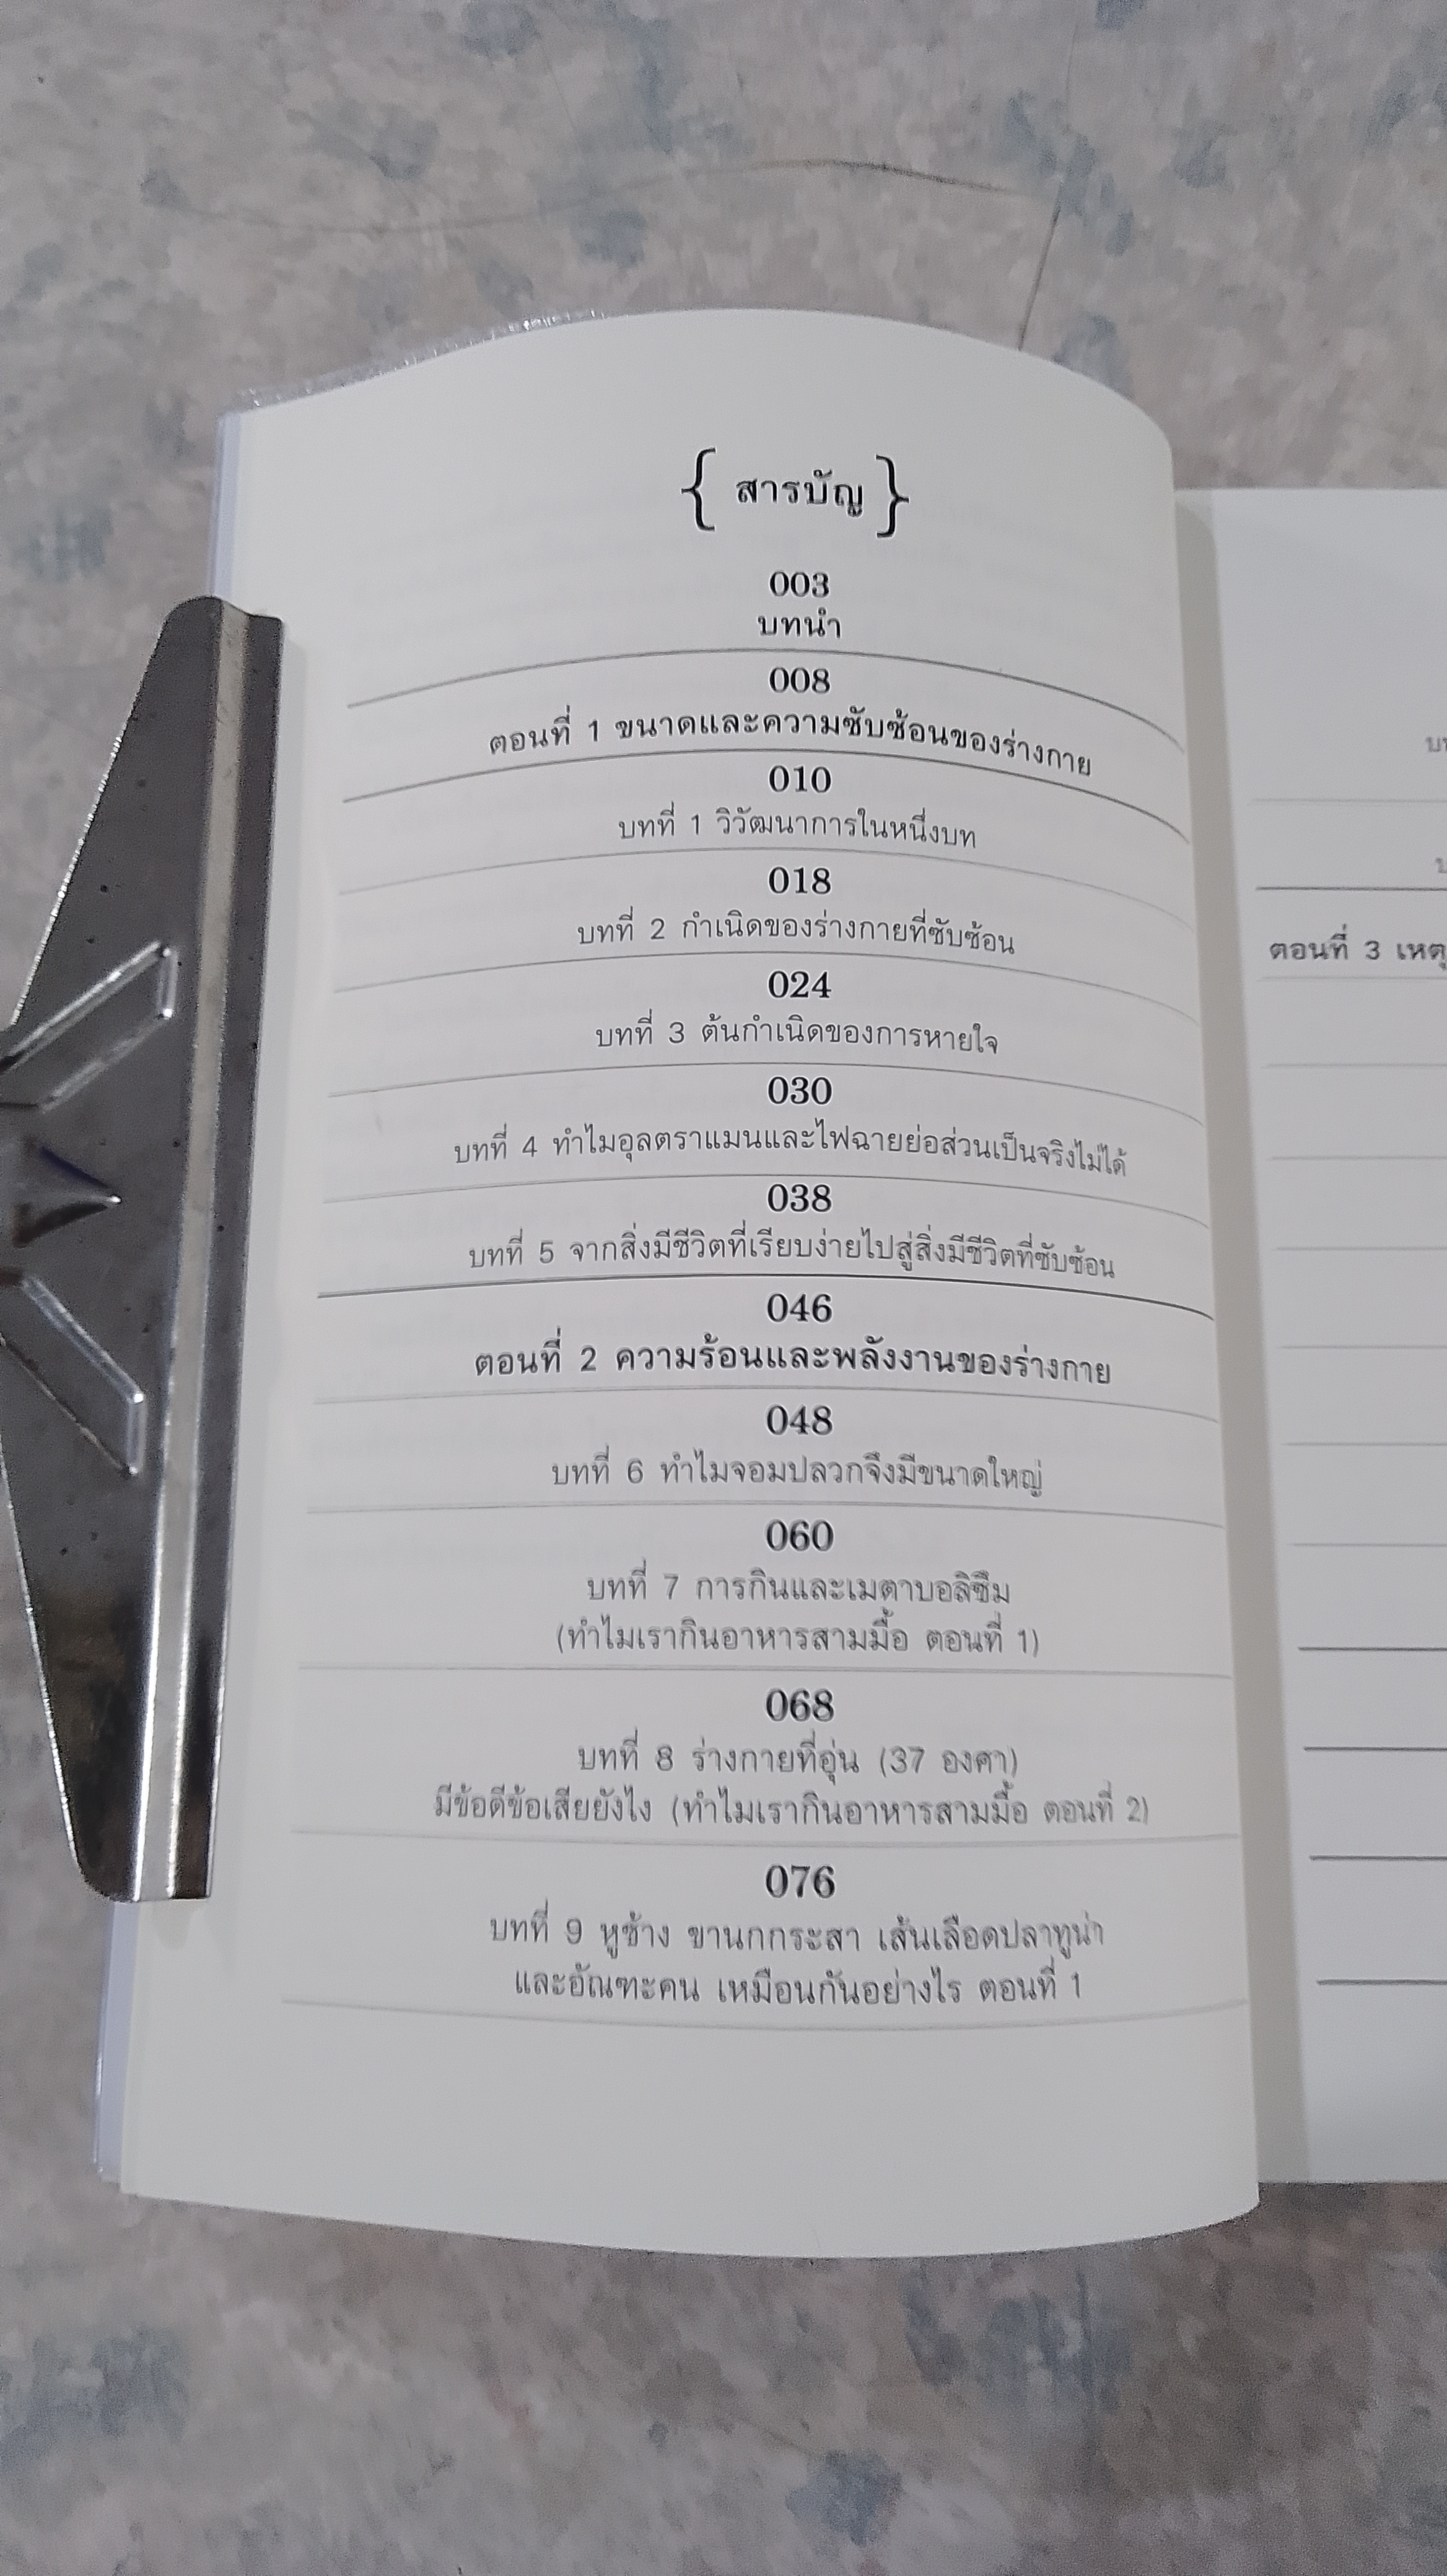 { สารบัญ }
003
บทนำ
008
ตอนที่ 1 ขนาดและความซับซ้อนของร่างกาย
010
บทที่ 1 วิวัฒนาการในหนึ่งบท
018
บทที่ 2 กำเนิดของร่างกายที่ซับซ้อน
024
บทที่ 3 ต้นกำเนิดของการหายใจ
030
บทที่ 4 ทำไมอุลตราแมนและไฟฉายย่อส่วนเป็นจริงไม่ได้
038
บทที่ 5 จากสิ่งมีชีวิตที่เรียบง่ายไปสู่สิ่งมีชีวิตที่ซับซ้อน
046
ตอนที่ 2 ความร้อนและพลังงานของร่างกาย
048
บทที่ 6 ทำไมจอมปลวกจึงมีขนาดใหญ่
060
บทที่ 7 การกินและเมตาบอลิซึม
(ทำไมเรากินอาหารสามมื้อ ตอนที่ 1)
068
บทที่ 8 ร่างกายที่อุ่น (37 องศา)
มีข้อดีข้อเสียยังไง (ทำไมเรากินอาหารสามมื้อ ตอนที่ 2)
076
บทที่ 9 หูช้าง ขานกกระสา เส้นเลือดปลาทูน่า
และอัณฑะคน เหมือนกันอย่างไร ตอนที่ 1
ตอนที่ 3